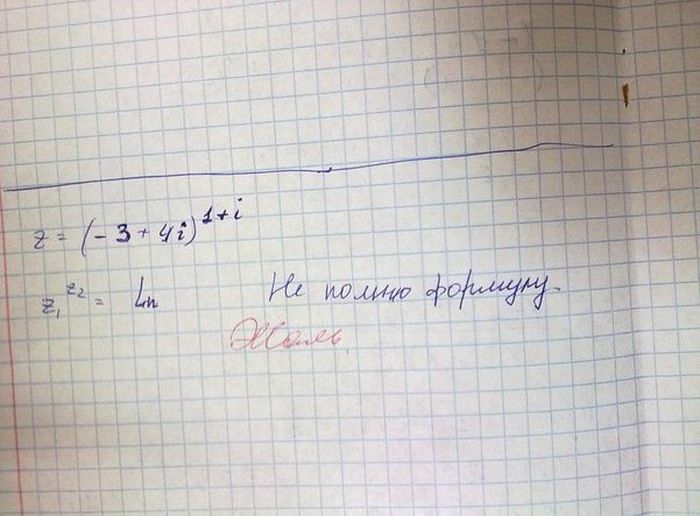 z = (-3 + 4i)^{1+i}
z₁^{z₂} = Ln Не помню формулу.
Жаль.